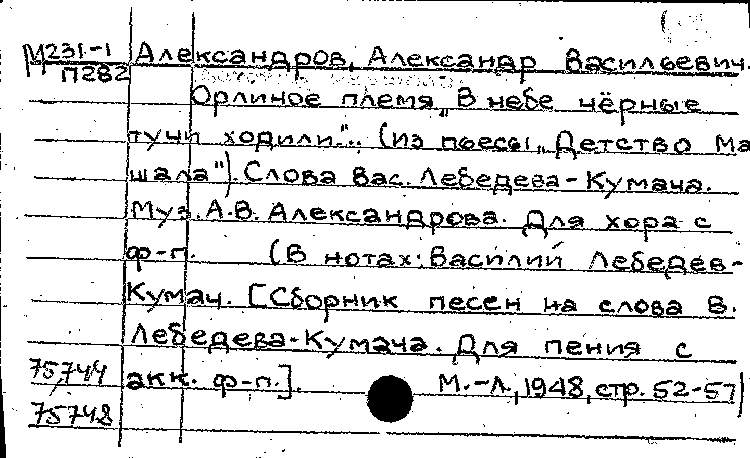 М231-1 Александров, Александр Васильевич.
П282
Орлиное племя „В небе чёрные
тучи ходили".. (Из пьесы „Детство Ма
шала"). Слова Вас. Лебедева-Кумача.
Муз. А.В. Александрова. Для хора с
ф-п. (В нотах: Василий Лебедев-
Кумач. [Сборник песен на слова В.
Лебедева-Кумача. Для пения с
75744 акк. ф-п.]. М.-Л., 1948, стр. 52-57)
75748